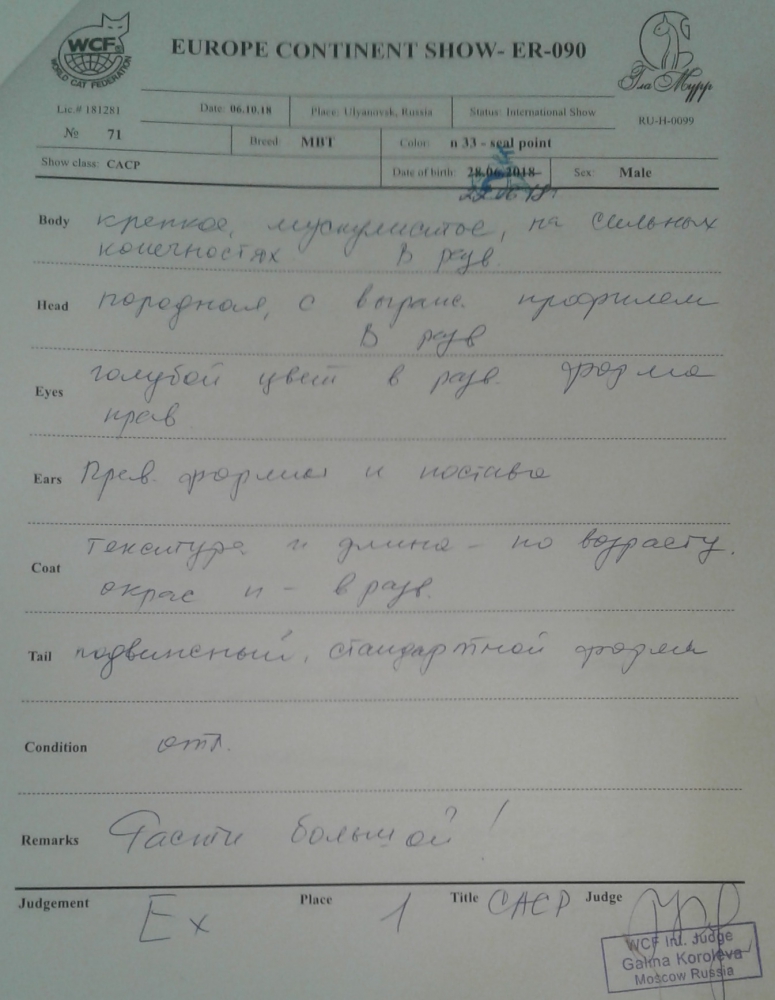 WCF
WORLD CAT FEDERATION
EUROPE CONTINENT SHOW- ER-090
Эла Мурр
Lic.# 181281 Date: 06.10.18 Place: Ulyanovsk, Russia Status: International Show RU-H-0099
№ 71 Breed: MBT Color: n 33 - seal point
Show class: CACP Date of birth: 28.06.2018 Sex: Male
Body крепкое, мускулистое, на сильных
конечностях В разв.
Head породная, с выраж. профилем
В разв
Eyes голубой цвет в разв. форма
прав
Ears Прав. формы и постава
Coat Текстура и длина - по возрасту.
окрас п - в разв.
Tail подвижный, стандартной формы
Condition отл.
Remarks Расти большой!
Judgement Ex Place 1 Title CACP Judge
WCF Int. Judge
Galina Koroleva
Moscow Russia